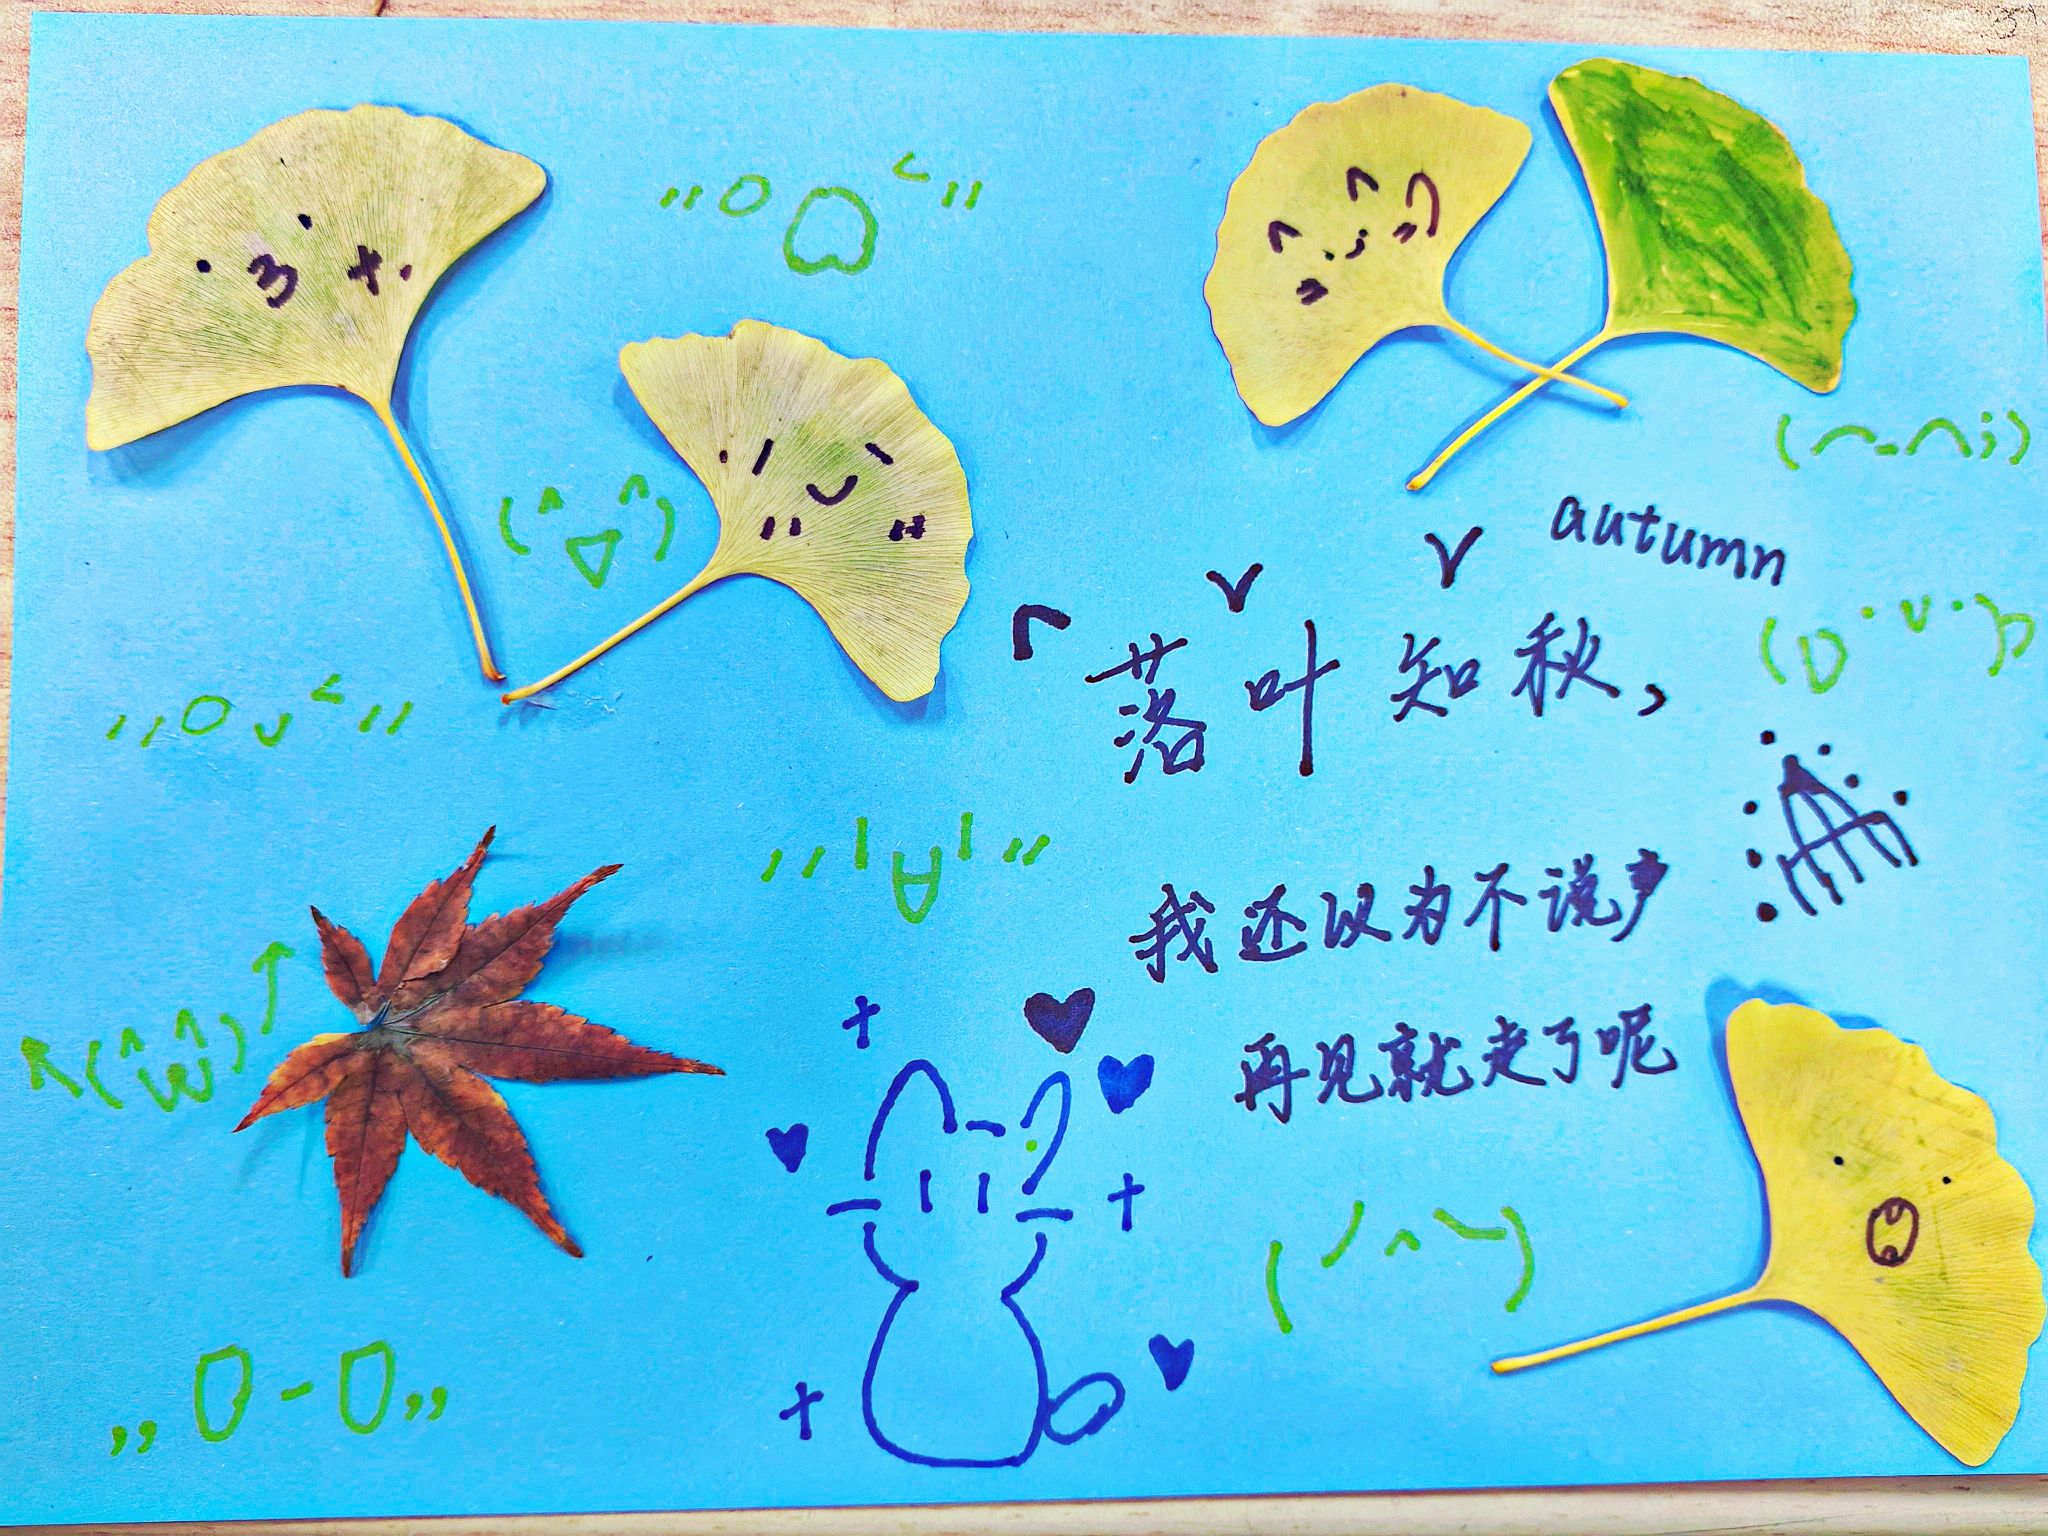 autumn
「落叶知秋,
我还以为不说声
再见就走了呢